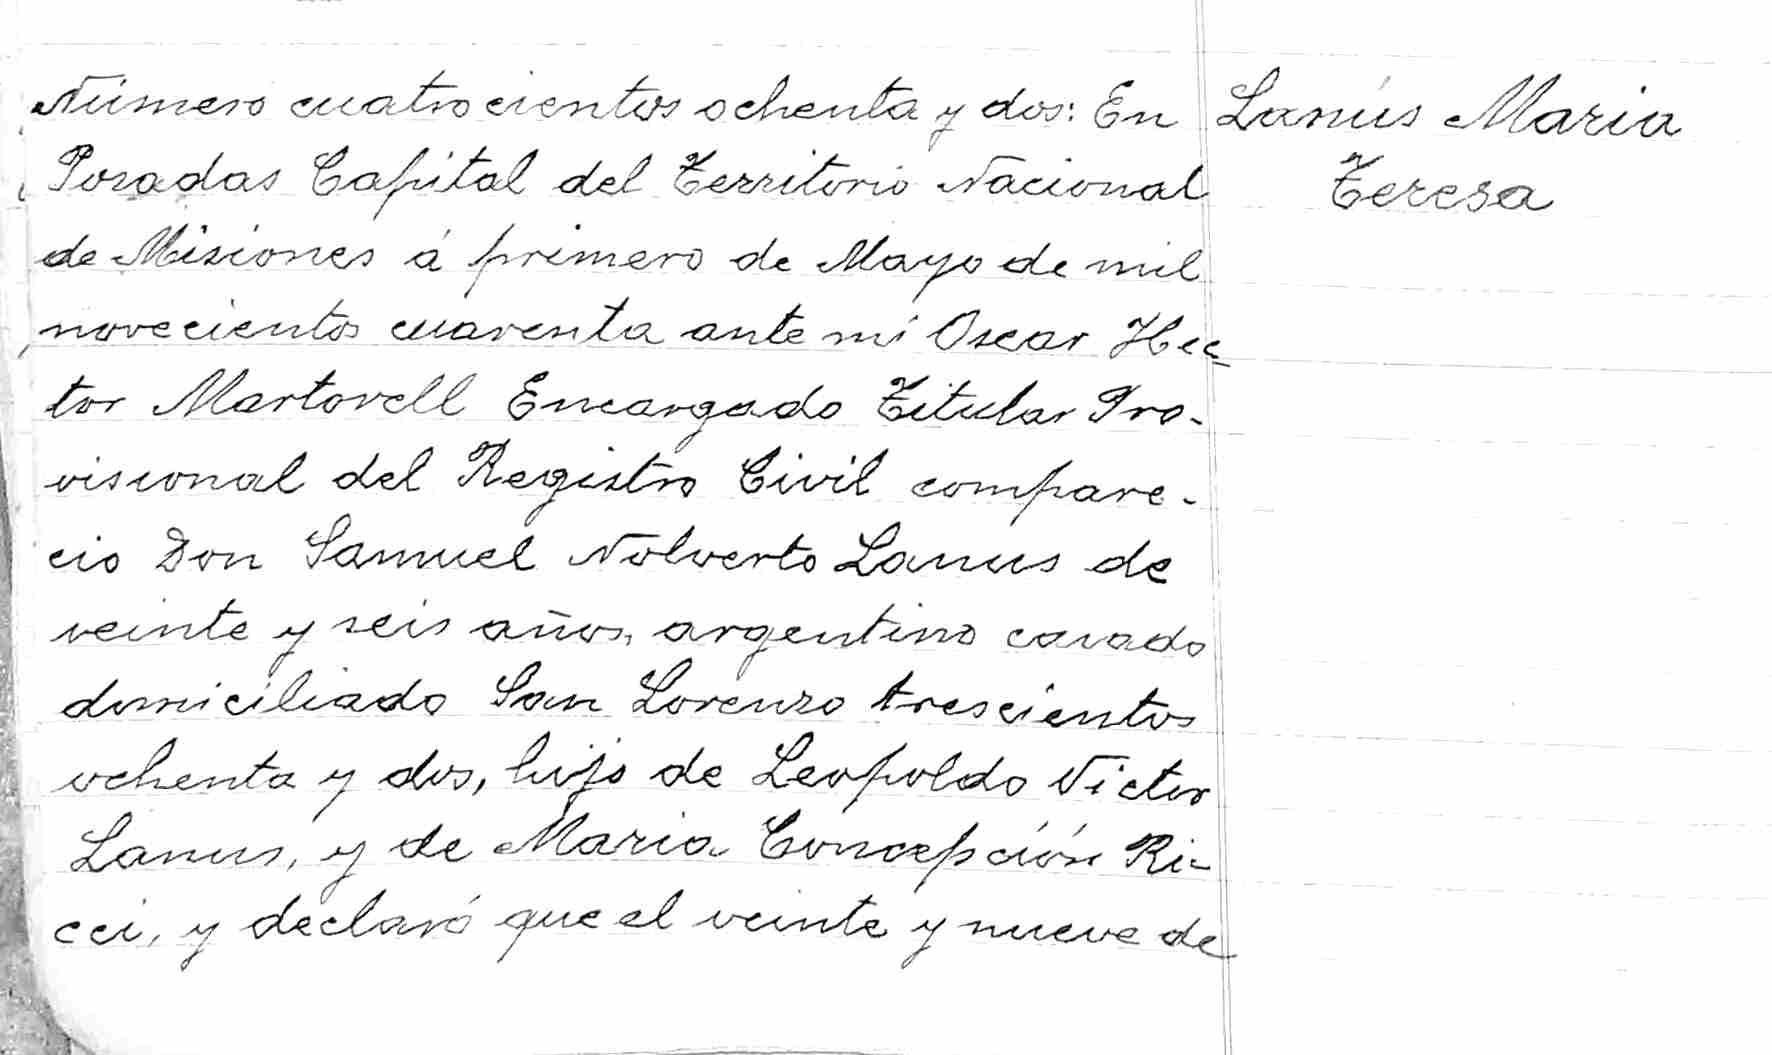 Número cuatrocientos ochenta y dos: En
Posadas Capital del Territorio Nacional
de Misiones á primero de Mayo de mil
novecientos cuarenta ante mí Oscar Hec-
tor Martorell Encargado Titular Pro-
visional del Registro Civil compare-
cio Don Samuel Nolverto Lanus de
veinte y seis años, argentino casado
domiciliado San Lorenzo trescientos
ochenta y dos, hijo de Leopoldo Victor
Lanus, y de Maria Concepción Ri-
cci, y declaró que el veinte y nueve de
Lanús Maria
Teresa